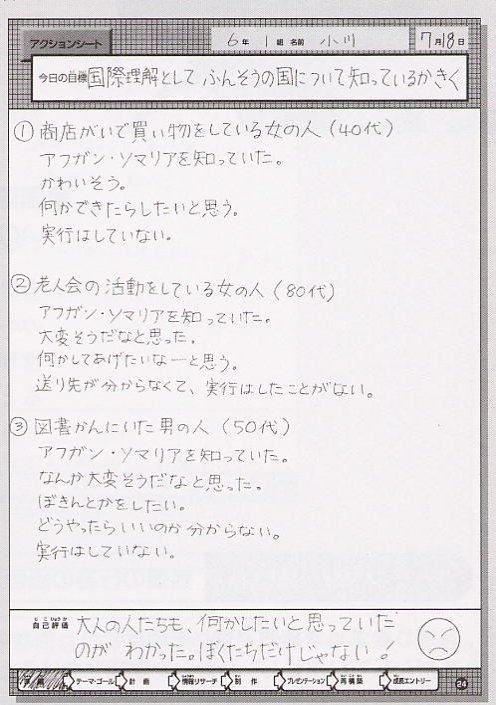 アクションシート
6年 1組 名前 小川 7月18日
今日の目標 国際理解として ふんそうの国について知っているかきく
① 商店がいで買い物をしている女の人(40代)
アフガン・ソマリアを知っていた。
かわいそう。
何かできたらしたいと思う。
実行はしていない。
② 老人会の活動をしている女の人(80代)
アフガン・ソマリアを知っていた。
大変そうだなと思った。
何かしてあげたいなーと思う。
送り先が分からなくて、実行はしたことがない。
③ 図書かんにいた男の人(50代)
アフガン・ソマリアを知っていた。
なんか大変そうだなと思った。
ぼきんとかをしたい。
どうやったらいいのか分からない。
実行はしていない。
自己評価 大人の人たちも、何かしたいと思っていた
のが わかった。ぼくたちだけじゃない!
準備 テーマ・ゴール 計画 情報リサーチ 制作 プレゼンテーション 再構築 成長エントリー